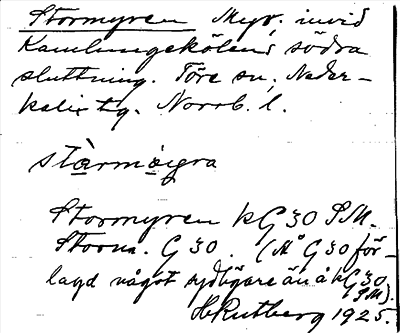 Stormyren Myr, invid
Kamlungekölens södra
sluttning. Töre sn, Neder-
kalix tg. Norrb. l.
stàrmøigra
Stormyren kG30 SM.
Storm. G30. (Å G30 för-
lagd något sydligare än å kG30
SM).
H Rutberg 1925.